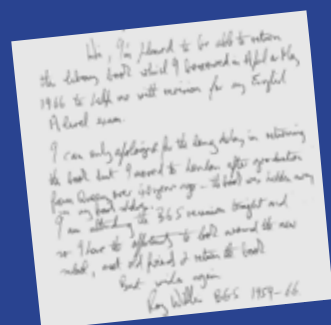 Hi, I'm pleased to be able to return
the library book which I borrowed in April or May
1966 to help me with revision for my English
A level exam.
I can only apologise for the long delay in returning
the book but I moved to London after graduation
from over 40 years ago - the book was hidden away
in my
I am attending the BGS reunion tonight and
so I have the opportunity to look around the new
school, meet old friends & return the book
Best wishes again
Roy BGS 1959-66